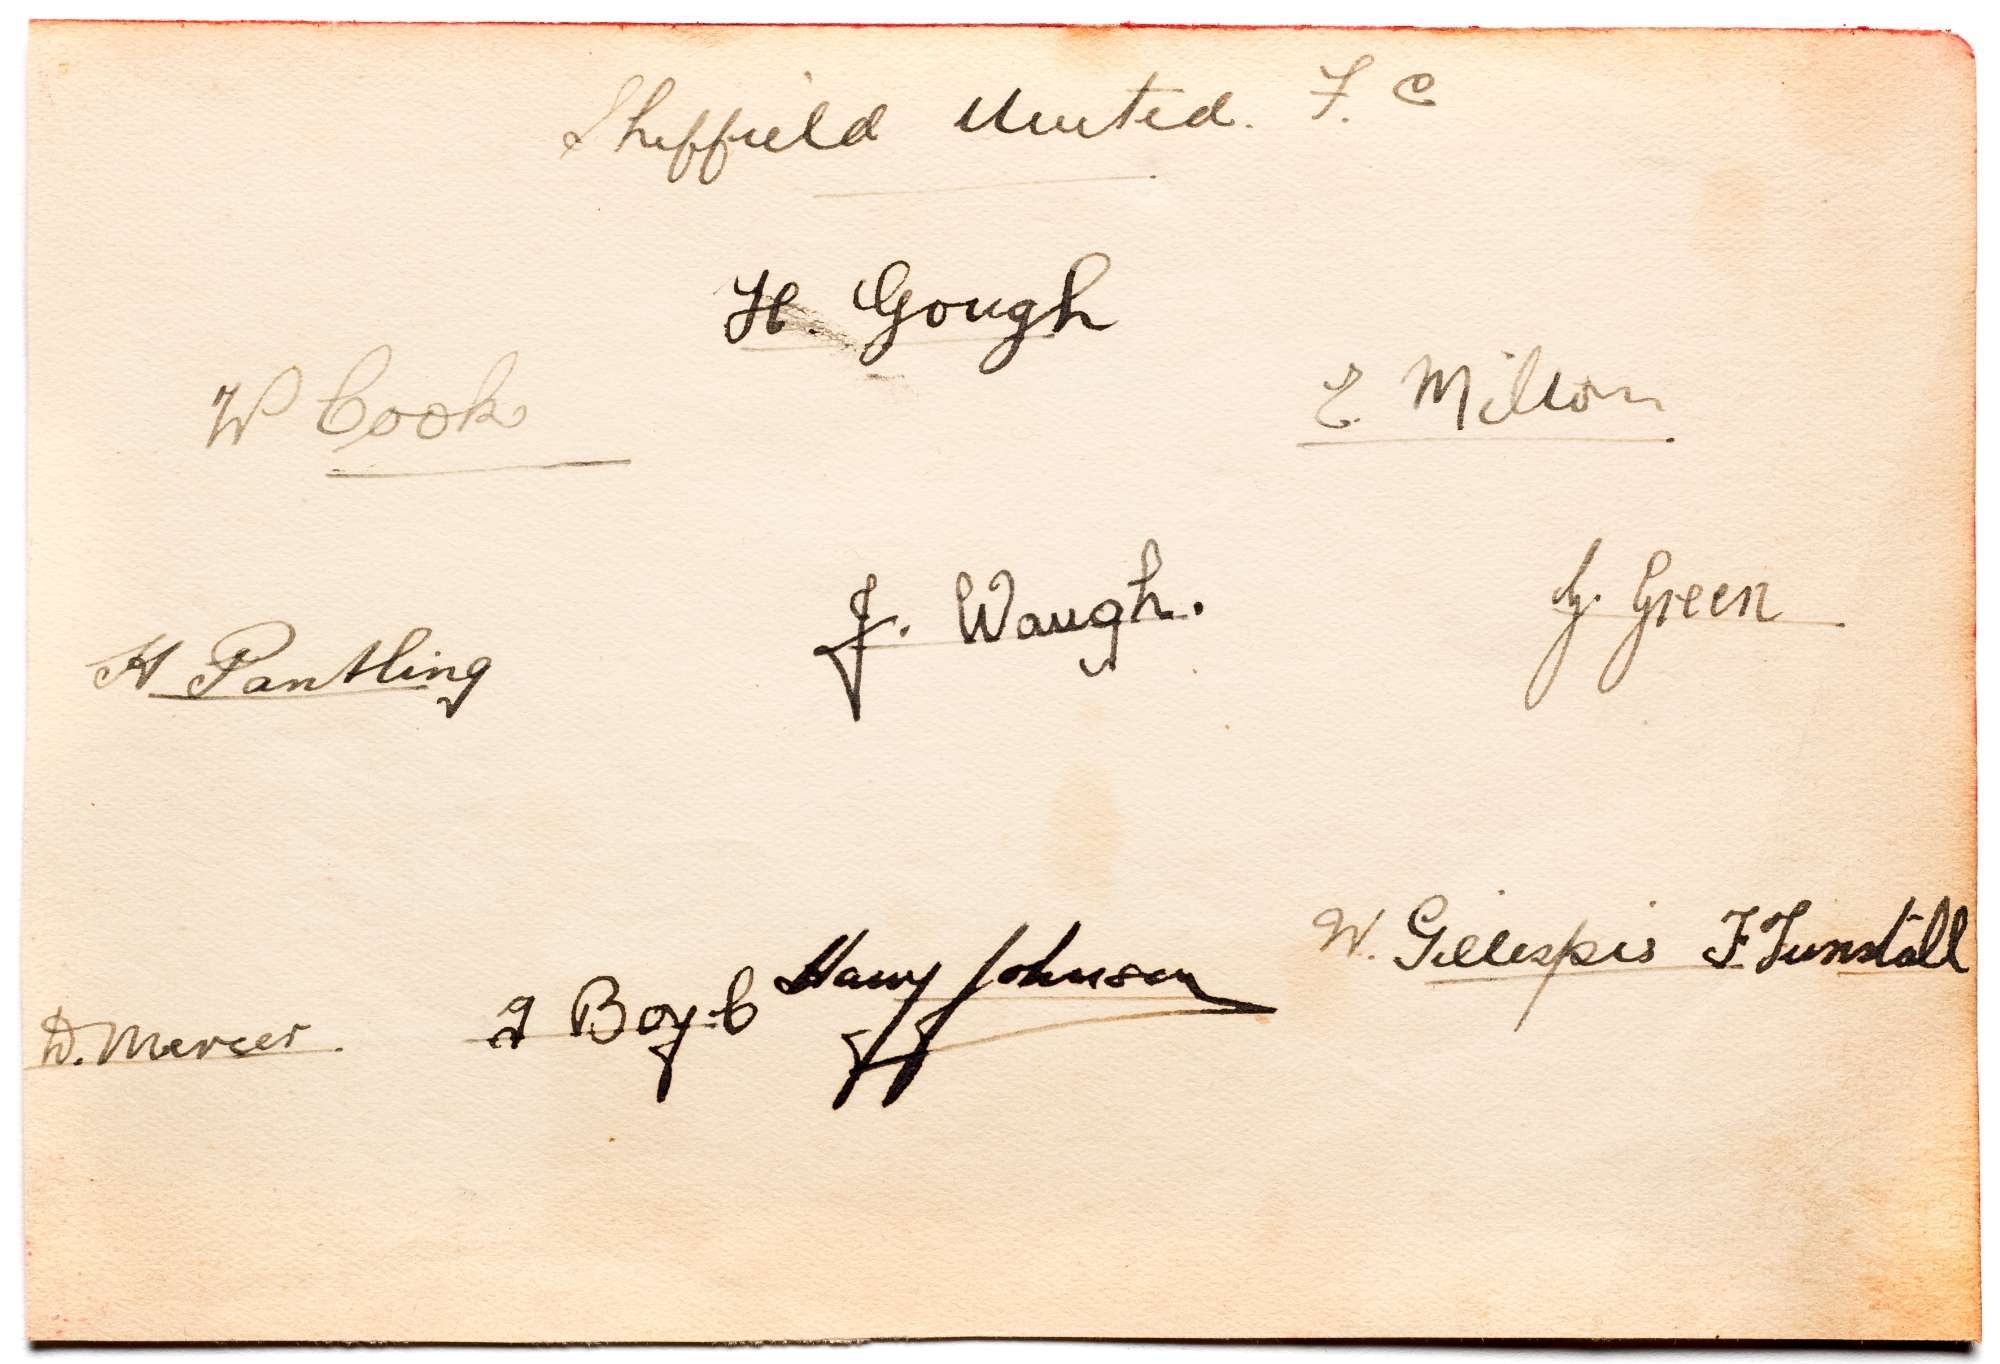 Sheffield United. F. C
H. Gough
W Cook
E. Milton
H Pantling
J. Waugh.
G. Green
D. Mercer
T Boyle
Harry Johnson
W. Gillespie
F Tunstall